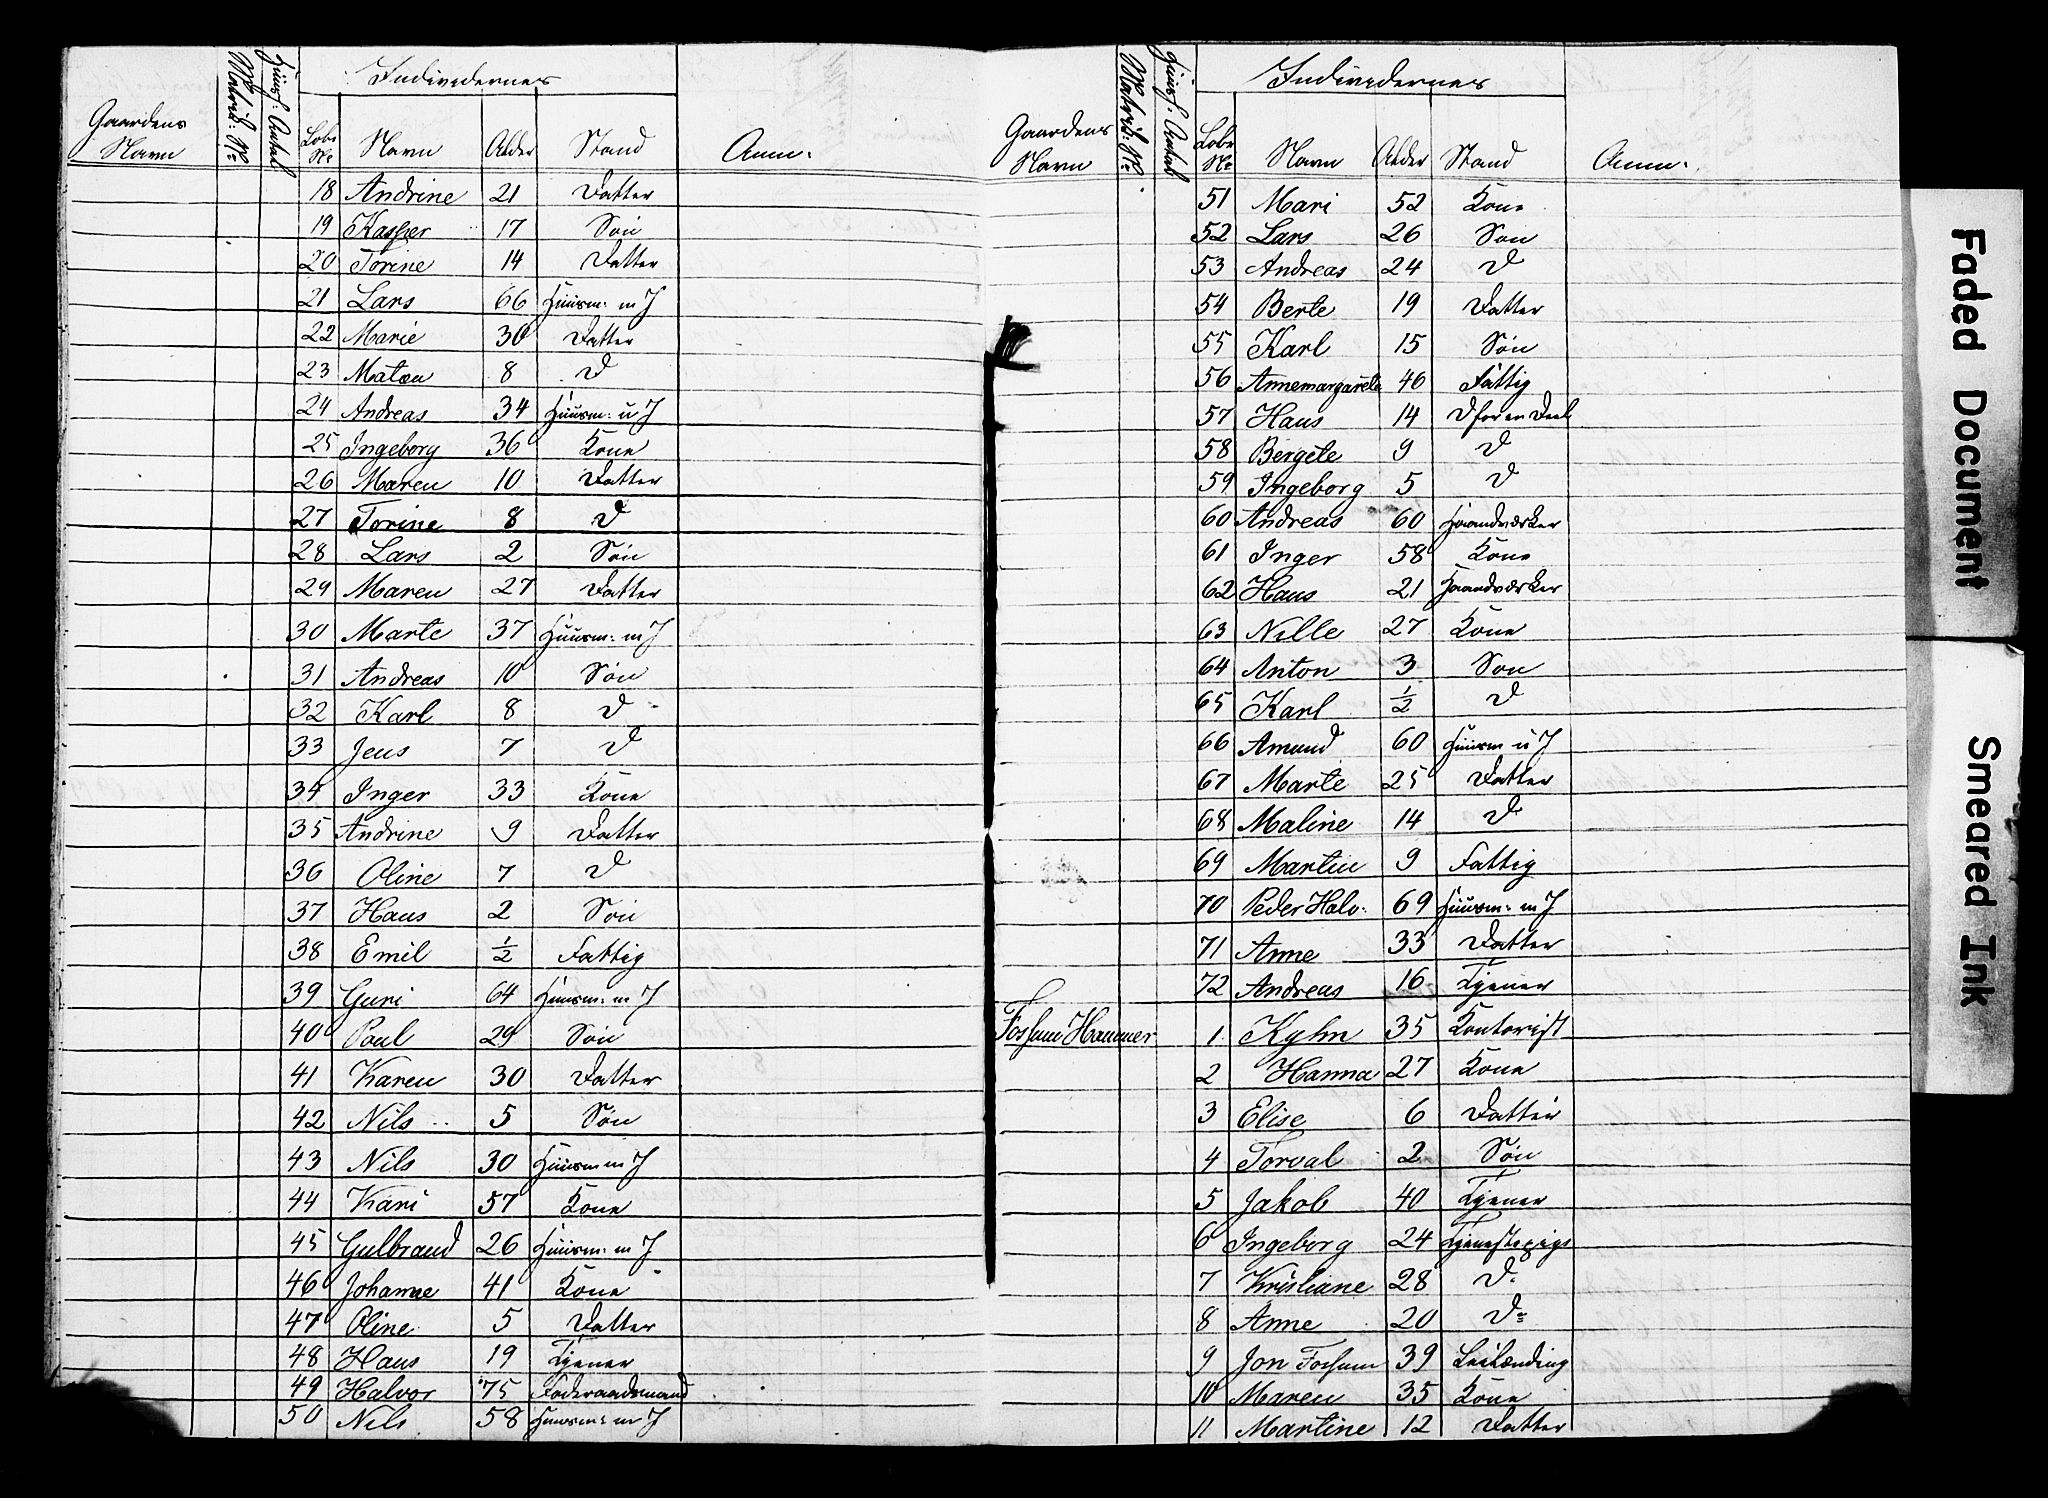 Gaardens Navn Matrik: No Huusf: Antal Individernes
Løbe No Navn Alder Stand Anm:
18 Andrine 21 Datter
19 Kasper 17 Søn
20 Torine 14 Datter
21 Lars 66 Huusm: m J
22 Marie 30 Datter
23 Matæa 8 D
24 Andreas 34 Huusm: u J
25 Ingeborg 36 Kone
26 Maren 10 Datter
27 Torine 8 D
28 Lars 2 Søn
29 Maren 27 Datter
30 Marte 37 Huusm: m J
31 Andreas 10 Søn
32 Karl 8 D
33 Jens 7 D
34 Inger 33 Kone
35 Andrine 9 Datter
36 Oline 7 D
37 Hans 2 Søn
38 Emil ½ Fattig
39 Guri 64 Huusm: m J
40 Poul 29 Søn
41 Karen 30 Datter
42 Nils 5 Søn
43 Nils 30 Huusm m J
44 Kari 57 Kone
45 Gulbrand 26 Huusm: m J
46 Johanne 41 Kone
47 Oline 5 Datter
48 Hans 19 Tjener
49 Halvor 75 Føderaadsmand
50 Nils 58 Huusm: m J
Gaardens Navn Matrik: No Huusf: Antal Individernes
Løbe No Navn Alder Stand Anm:
51 Mari 52 Kone
52 Lars 26 Søn
53 Andreas 24 D
54 Berte 19 Datter
55 Karl 15 Søn
56 Annemargarete 46 Fattig
57 Hans 14 D for en Deel
58 Bergete 9 D
59 Ingeborg 5 D
60 Andreas 60 Haandværker
61 Inger 58 Kone
62 Hans 21 Haandværker
63 Nille 27 Kone
64 Anton 3 Søn
65 Karl ½ D
66 Amund 60 Huusm u J
67 Marte 25 Datter
68 Maline 14 D
69 Martin 9 Fattig
70 Peder Halv: 69 Huusm: m J
71 Anne 33 Datter
72 Andreas 16 Tjener
Fossum Hammer 1 Kyhn 35 Kontorist
2 Hanna 27 Kone
3 Elise 6 Datter
4 Torval 2 Søn
5 Jakob 40 Tjener
6 Ingeborg 24 Tjenestepige
7 Kristiane 28 D
8 Anne 20 D
9 Jon Fossum 39 Leilænding
10 Maren 35 Kone
11 Martine 12 Datter
Faded Document
Smeared Ink